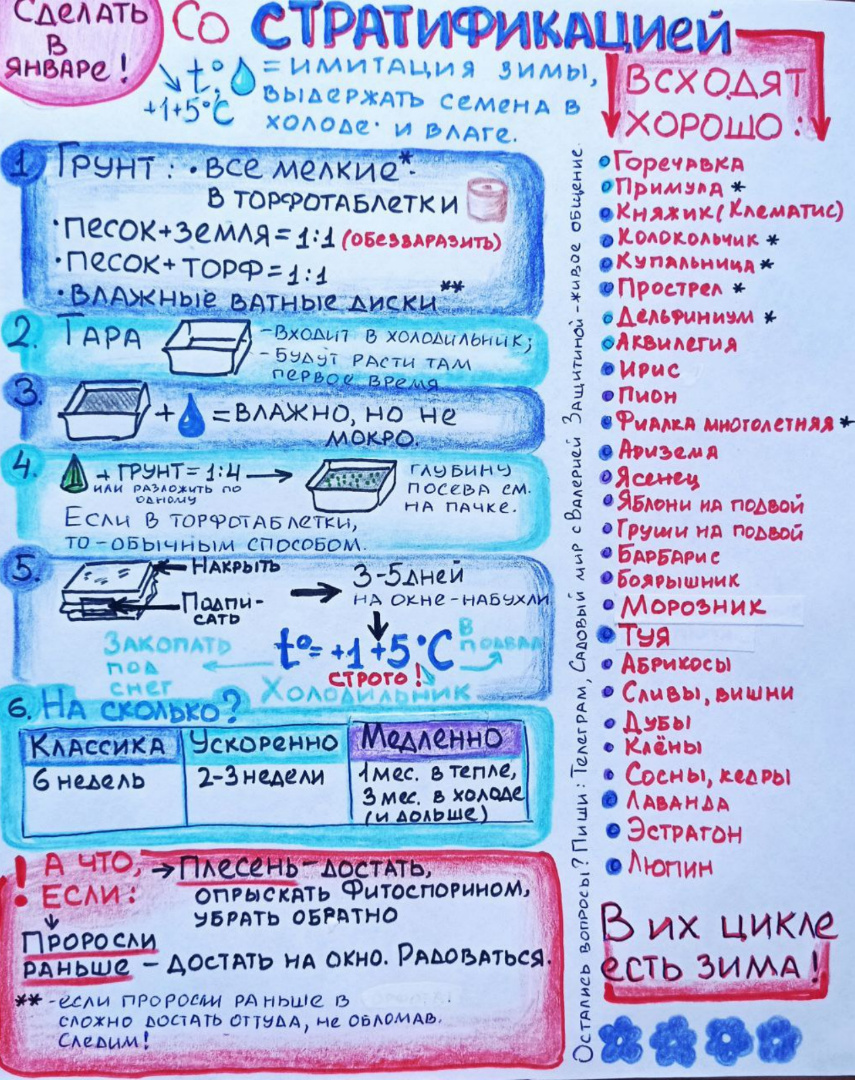 Сделать
в
январе!
со стратификацией
t° = имитация зимы,
+1+5°C
выдержать семена в
холоде и влаге.
1 Грунт: • все мелкие*
в торфотаблетки
• песок+земля=1:1 (обеззаразить)
• песок+торф=1:1
• влажные ватные диски**
2. Тара
- входит в холодильник;
- будут расти там
первое время
3.
+ = влажно, но не
мокро.
4.
+ грунт = 1:4
или разложить по
одному
глубину
посева см.
на пачке.
Если в торфотаблетки,
то - обычным способом.
5.
Накрыть
Подпи-
сать
3-5 дней
на окне - набухли
t°= +1+5°C
строго!
Закопать
под
снег
Холодильник
в
подвал
6. На сколько?
Классика Ускоренно Медленно
6 недель 2-3 недели 1 мес. в тепле,
3 мес. в холоде
(и дольше)
! А что,
если:
→ Плесень - достать,
опрыскать Фитоспорином,
убрать обратно
Проросли
раньше - достать на окно. Радоваться.
** - если проросли раньше в
сложно достать оттуда, не обломав.
Следим!
Остались вопросы? Пиши: Телеграм, Садовый мир с Валерией Защитиной - живое общение.
Всходят
хорошо:
• Горечавка
• Примула *
• Княжик (Клематис)
• Колокольчик *
• Купальница *
• Прострел *
• Дельфиниум *
• Аквилегия
• Ирис
• Пион
• Фиалка многолетняя *
• Аризема
• Ясенец
• Яблони на подвой
• Груши на подвой
• Барбарис
• Боярышник
• Морозник
• Туя
• Абрикосы
• Сливы, вишни
• Дубы
• Клёны
• Сосны, кедры
• Лаванда
• Эстрагон
• Люпин
В их цикле
есть зима!